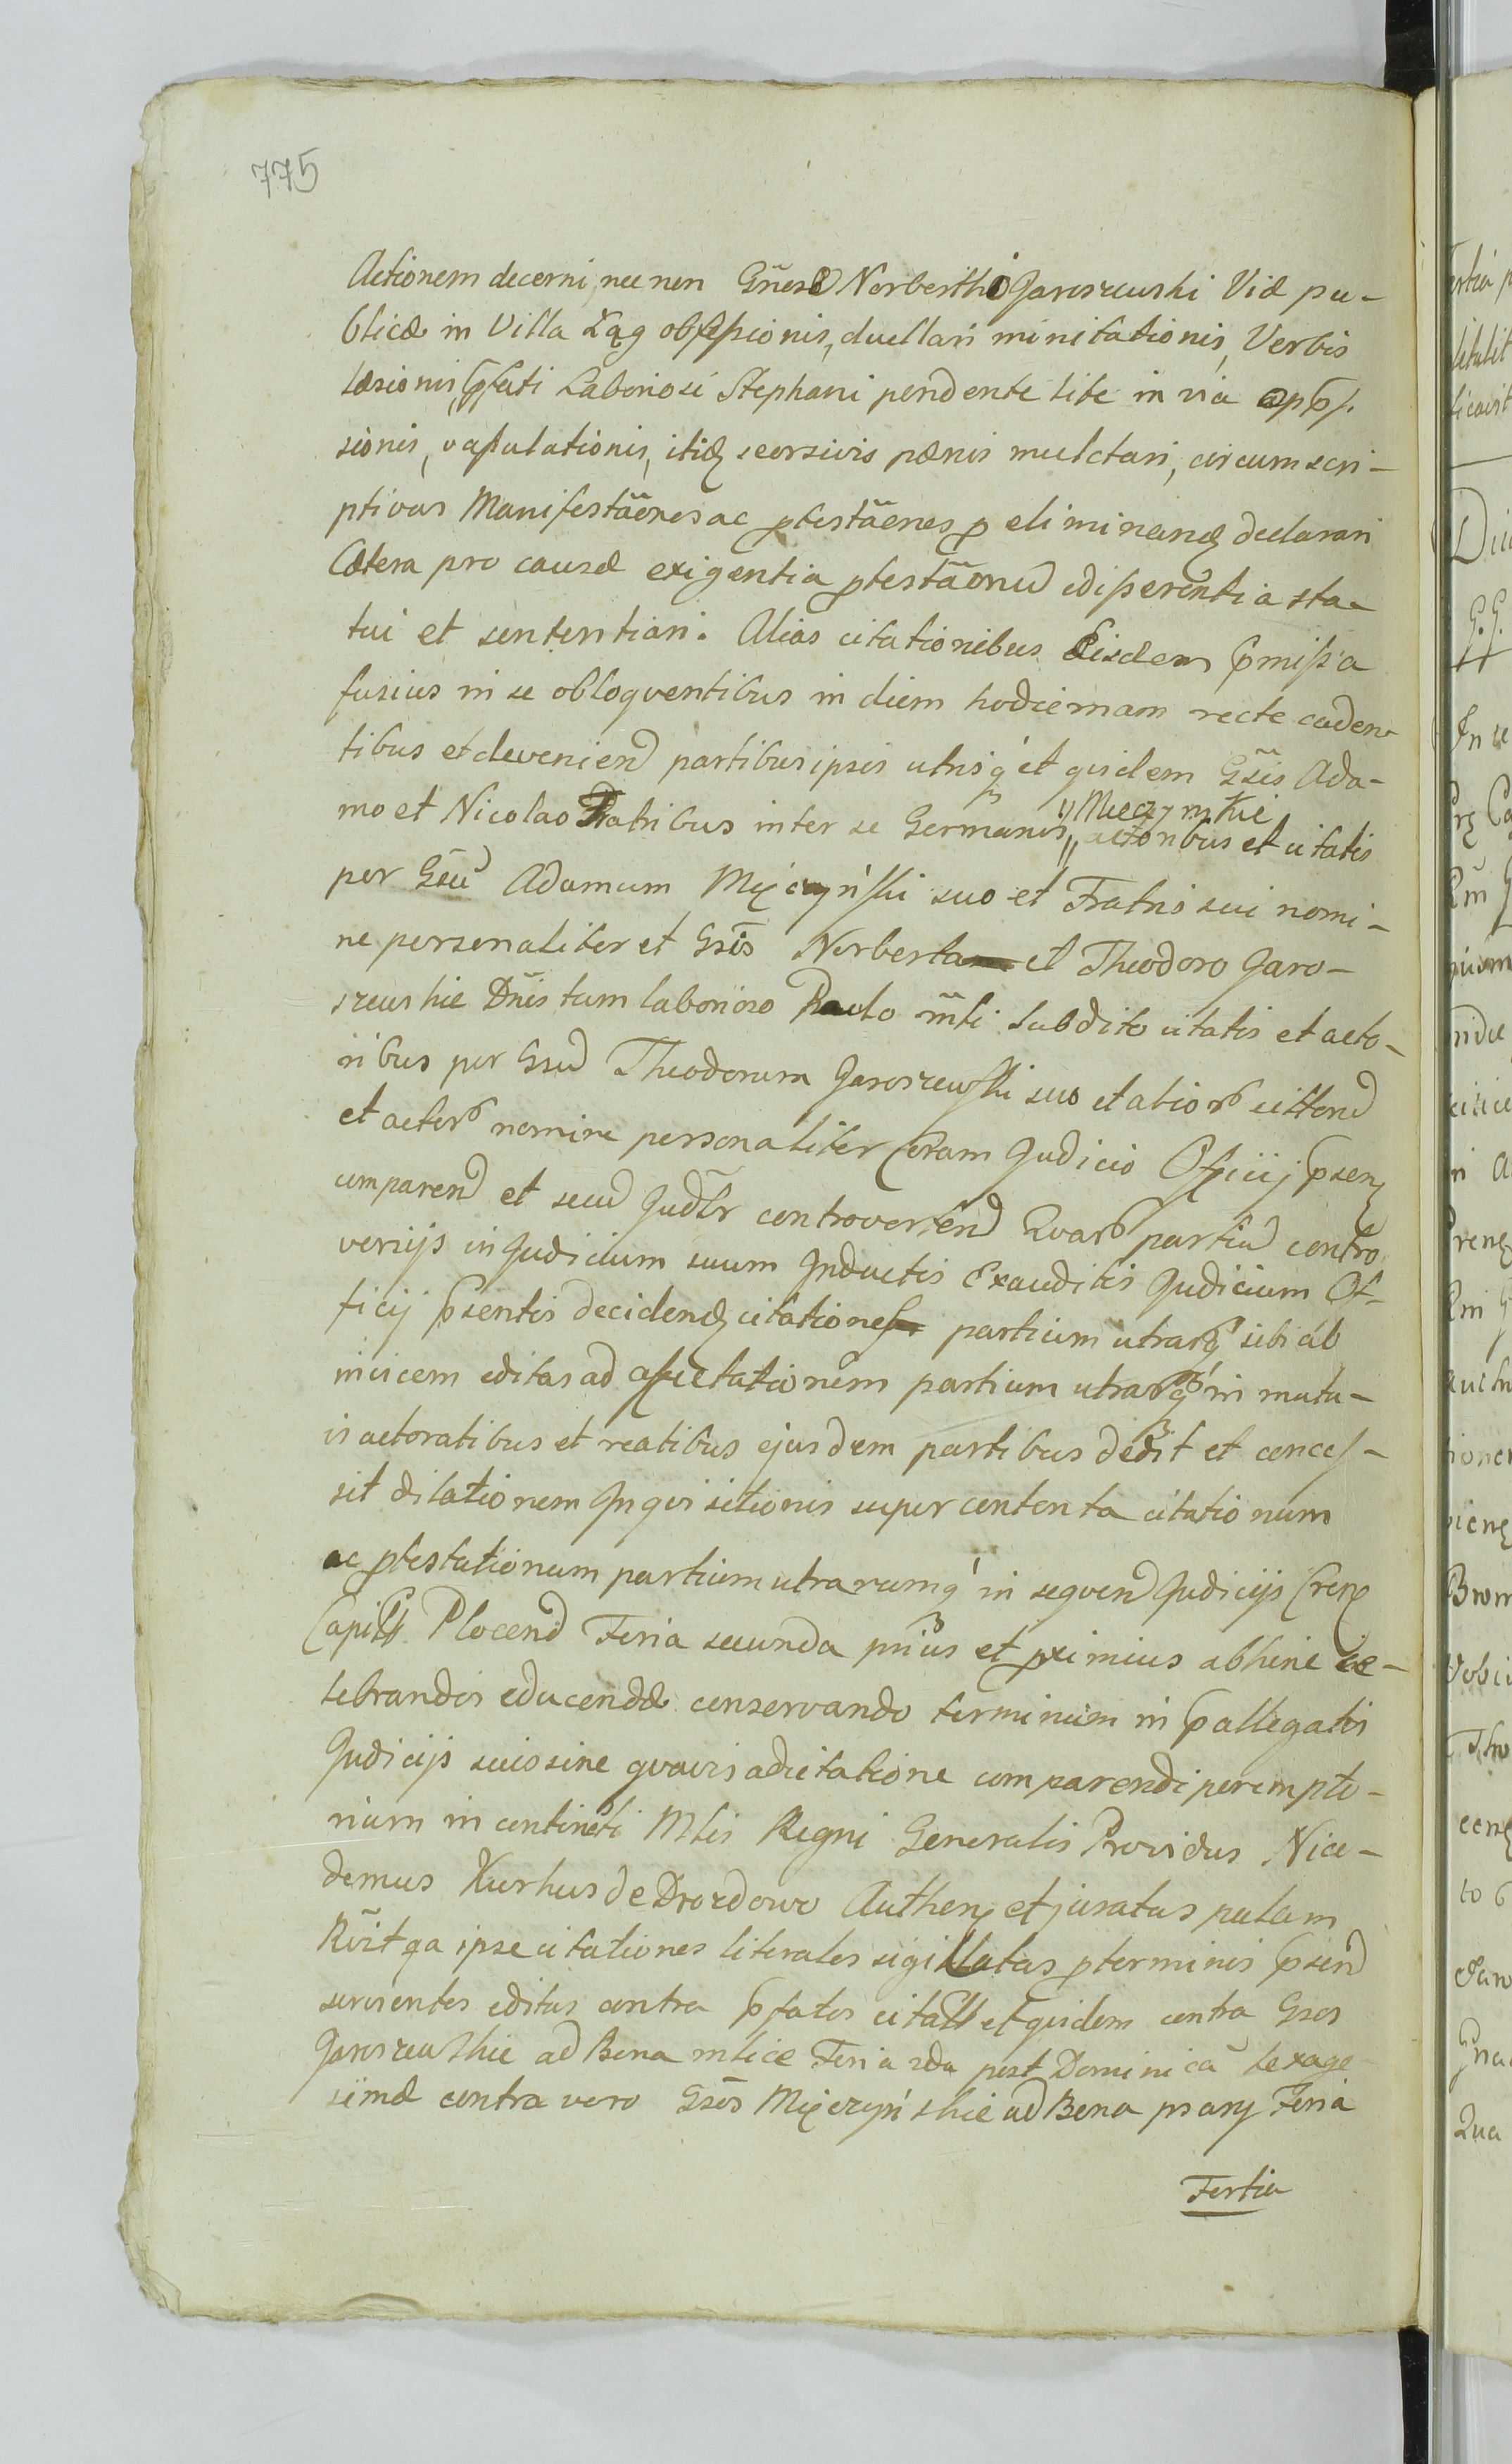 775
Actionem decerni, nec non Gn̄osæ Norberthi Jaroszewski Viæ pu-
blicæ in Villa Łąg obsessionis, duellari minitationis, Verbis
læsionis, pfati Laboriosi Stephani pendente lite in via opp̄s-
sionis, vapulationis, itidz seorsivis pænis mulctari, circumscri-
ptivas Manifestãones ac ptestãones p eliminandz declarari
Cætera pro causæ exigentia ptestãonu edisserentia sta-
tui et sententiari. Alias citationibus Eisdem p̄missa
fusius in se obloqventibus in diem hodiernam recte caden-
tibus et deveniend partibus ipsis utrisq́ et qvidem Gñsis Ada-
mo et Nicolao Fratribus inter se Germanis, actoribus et citatis
y Mieczynskie
per Gsū Adamum Mięczyński suo et Fratris sui nomi-
ne personaliter et Gsis Norberto et Theodoro Jaro-
szewskie Dn̄is tum laborioso Paulo m̃li Subdito citatis et acto-
ribus per Gsu Theodorum Jaroszewski suo et alior citator
et actor nomine personaliter Coram Judicio Officij p̄senz
comparend et secu Judlr controvertend Qvar partiu contro
versijs in Judicium suum Inductis Exauditis Judicium Of-
ficij p̄sentis decidendz citationes partium utrarq́ sibi ab
invicem editas ad affectationem partium utrarq́ in mutu-
is actoratibus et reatibus ejusdem partibus dedit et conces-
sit dilationem Inqvisitionis super contenta citationum
ac ptestationum partium utrarumq́ in seqvend Judicijs Cren
Capitlis Plocens Feria secunda prius et pximius abhinc ce-
lebrandis educendæ conservando terminum in p̄allegatis
Judicijs suis sine qvavis adcitatione comparendi perempto-
rium in continēti Mtis Regni Generalis Providus Nico-
demus Kurkus de Drozdowo Authenz et juratus palam
Rõit qa ipse citationes literales sigillatas pterminis p̄send
servientes editas contra p̄fatos citatos et qvidem contra Gsos
Jaroszewskie ad Bona mlice Feria 2da post Dominicā sexage
simæ contra vero Gsos Mięczyńskie ad Bona psary Feria
Tertia